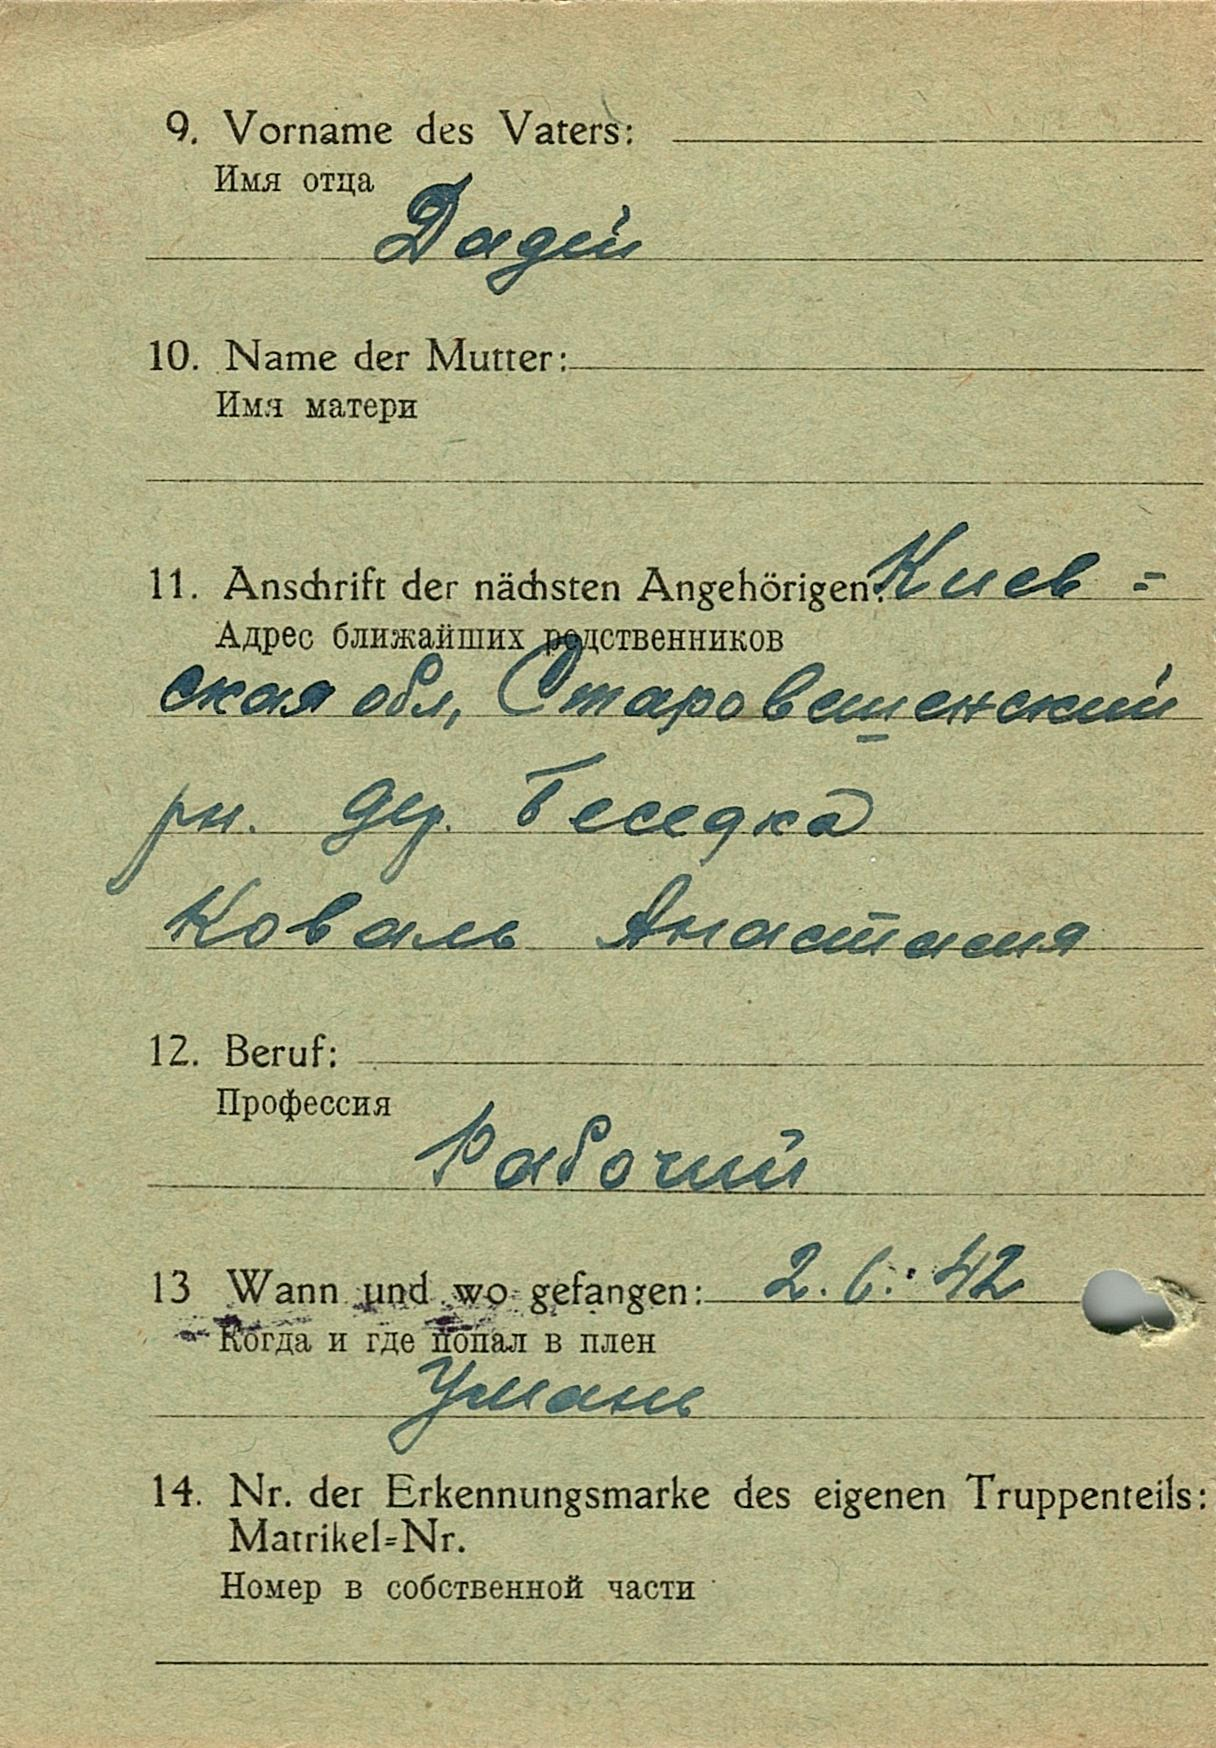 9. Vorname des Vaters:
Имя отца
Дадей
10. Name der Mutter:
Имя матери
11. Anschrift der nächsten Angehörigen: Киев=
Адрес ближайших родственников
ская обл, Старовешенский
рн. дер. Беседка
Коваль Анастасия
12. Beruf:
Профессия
Рабочий
13 Wann und wo gefangen: 2. 6. 42
Когда и где попал в плен
Умань
14. Nr. der Erkennungsmarke des eigenen Truppenteils:
Matrikel=Nr.
Номер в собственной части